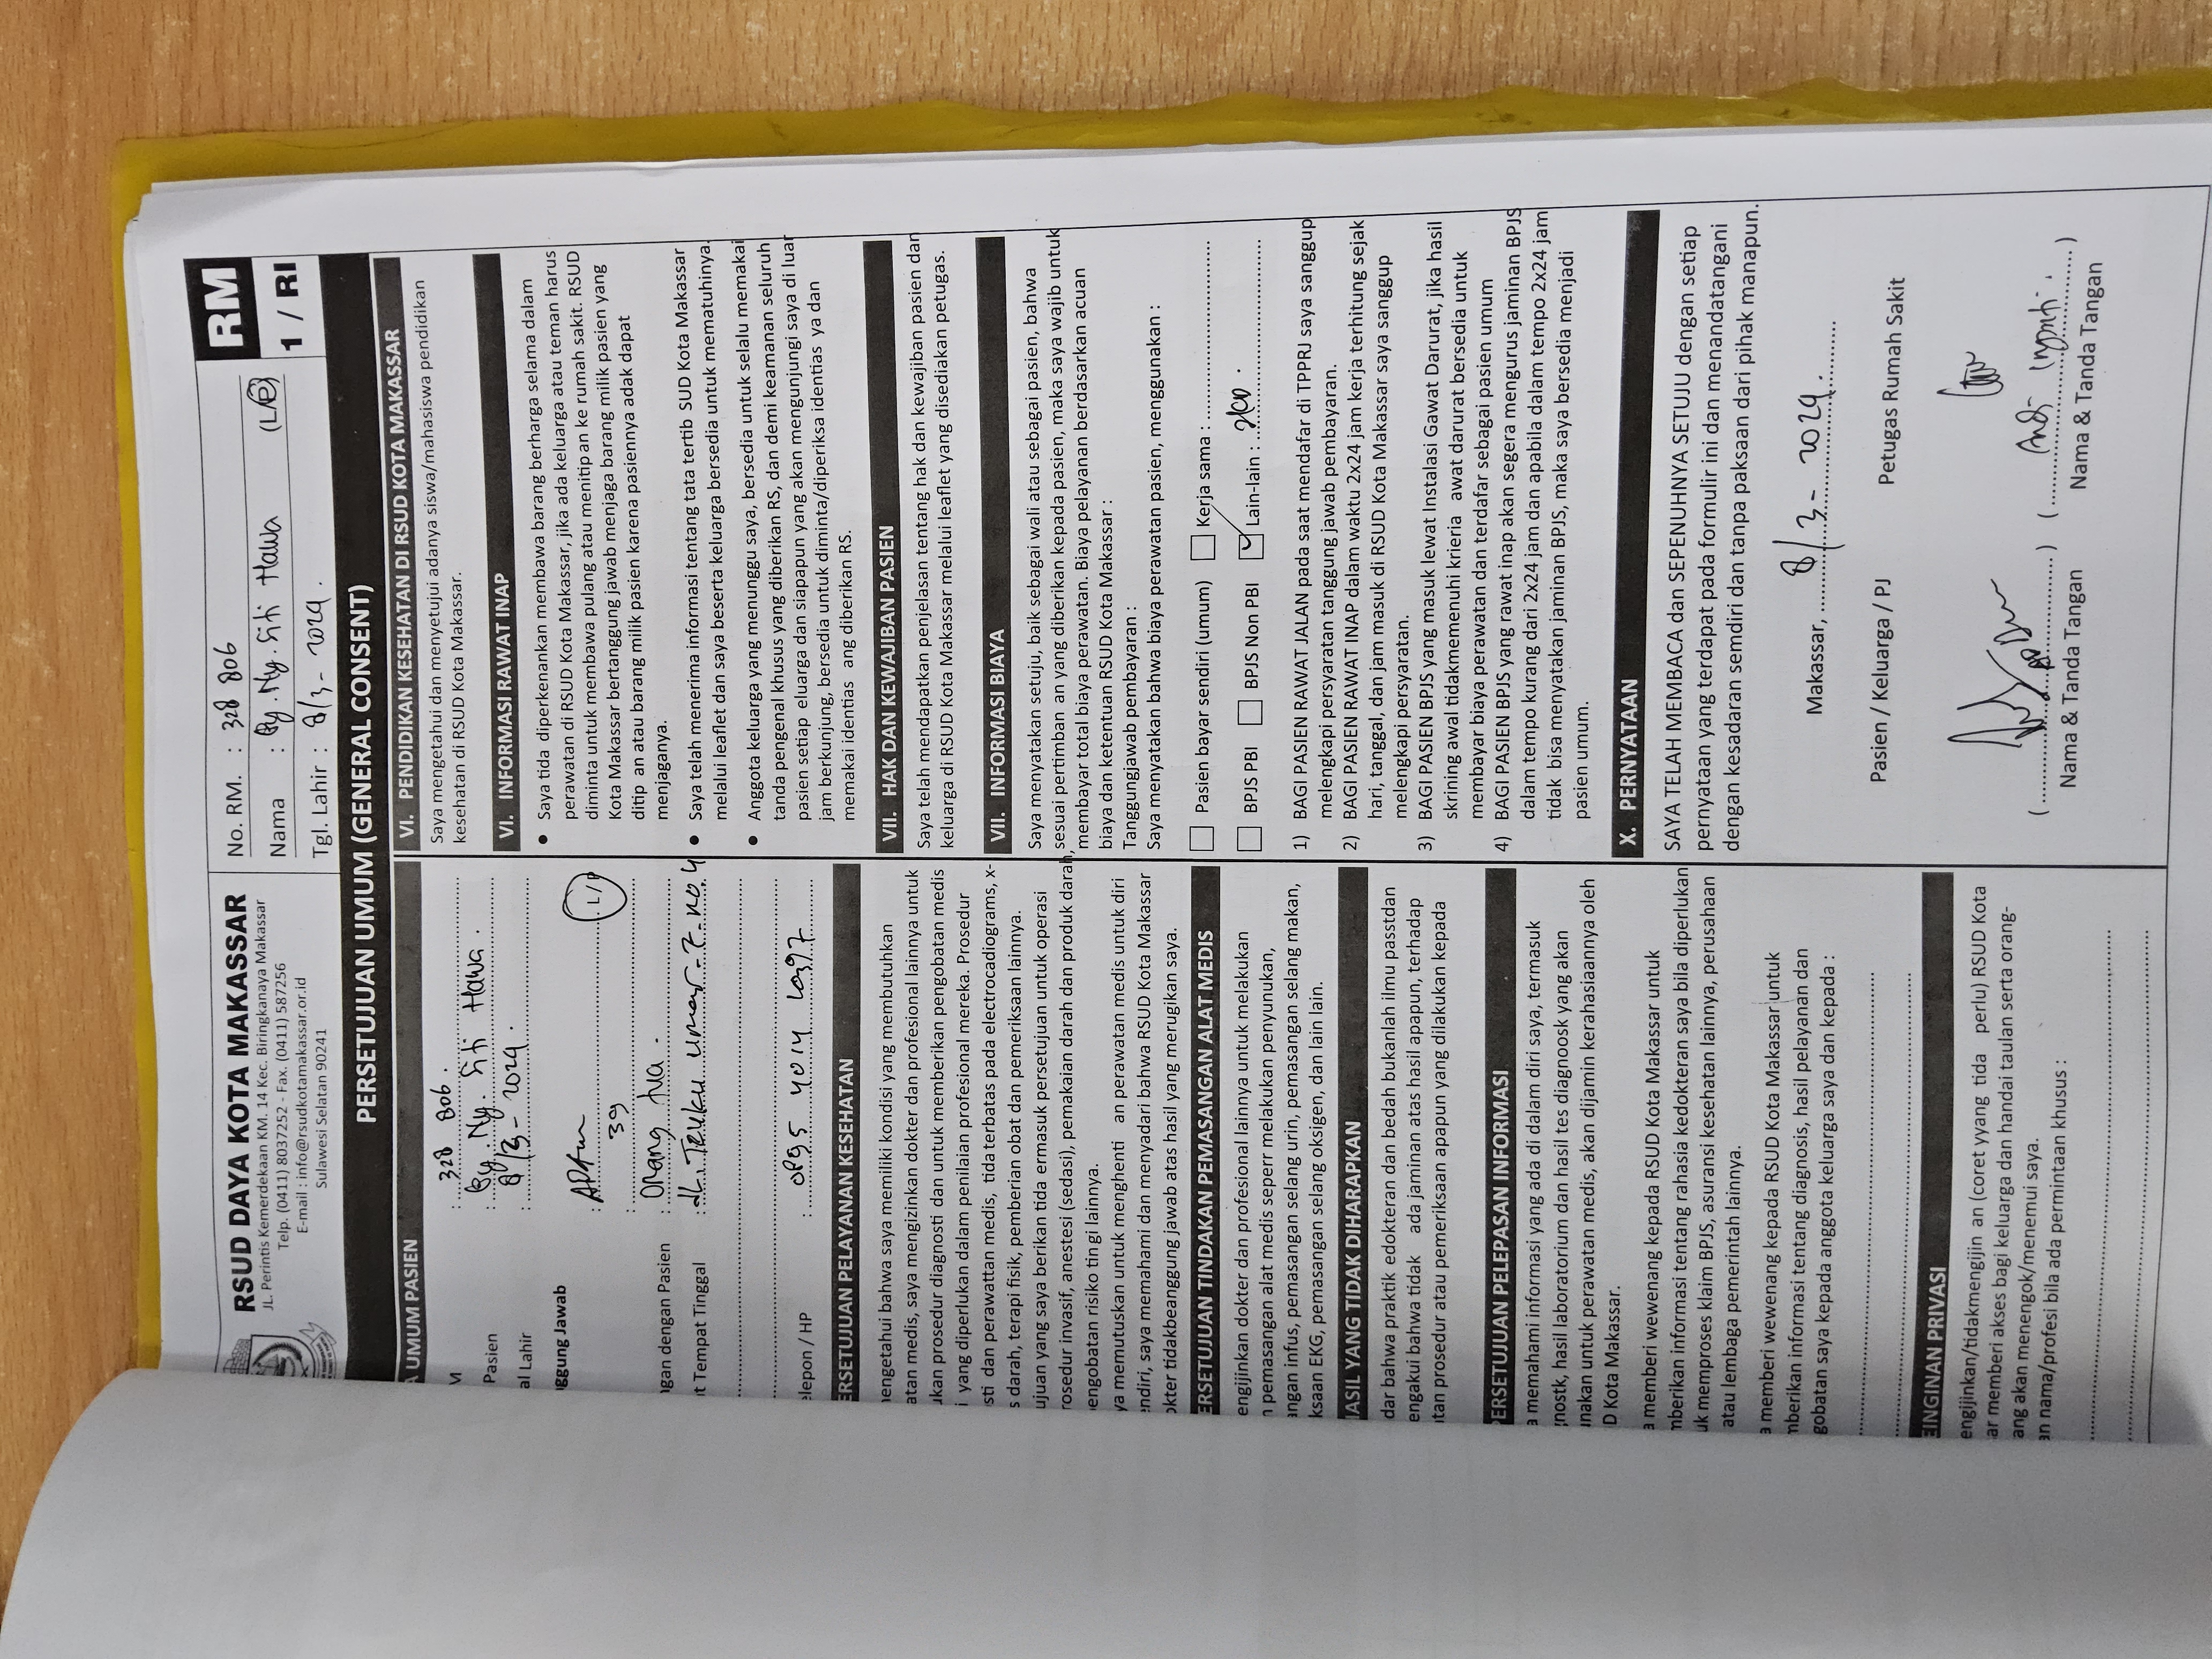 RSUD DAYA KOTA MAKASSAR
JL. Perintis Kemerdekaan KM. 14 Kec. Biringkanaya Makassar
Telp. (0411) 8037252 - Fax. (0411) 587256
E-mail : info@rsudkotamakassar.or.id
Sulawesi Selatan 90241
No. RM. : 328 806
Nama : By. Ny. Siti Hawa (L/P)
Tgl. Lahir : 8/3 - 2024.
RM
1 / RI
PERSETUJUAN UMUM (GENERAL CONSENT)
UMUM PASIEN
M : 328 806.
Pasien : By. Ny. Siti Hawa.
al Lahir : 8/3 - 2024.
ggung Jawab
: L / P
: 39
gan dengan Pasien : Orang tua.
t Tempat Tinggal : no 4
elepon / HP :
ERSETUJUAN PELAYANAN KESEHATAN
engetahui bahwa saya memiliki kondisi yang membutuhkan
atan medis, saya mengizinkan dokter dan profesional lainnya untuk
ukan prosedur diagnosti dan untuk memberikan pengobatan medis
i yang diperlukan dalam penilaian profesional mereka. Prosedur
sti dan perawattan medis, tida terbatas pada electrocadiograms, x-
s darah, terapi fisik, pemberian obat dan pemeriksaan lainnya.
ujuan yang saya berikan tida ermasuk persetujuan untuk operasi
rosedur invasif, anestesi (sedasi), pemakaian darah dan produk darah,
engobatan risiko tingi lainnya.
ya memutuskan untuk menghenti an perawatan medis untuk diri
endiri, saya memahami dan menyadari bahwa RSUD Kota Makassar
okter tidakbeanggung jawab atas hasil yang merugikan saya.
ERSETUJUAN TINDAKAN PEMASANGAN ALAT MEDIS
engijinkan dokter dan profesional lainnya untuk melakukan
n pemasangan alat medis seperr melakukan penyunukan,
angan infus, pemasangan selang urin, pemasangan selang makan,
ksaan EKG, pemasangan selang oksigen, dan lain lain.
HASIL YANG TIDAK DIHARAPKAN
dar bahwa praktik edokteran dan bedah bukanlah ilmu passtdan
engakui bahwa tidak ada jaminan atas hasil apapun, terhadap
tan prosedur atau pemeriksaan apapun yang dilakukan kepada
ERSETUJUAN PELEPASAN INFORMASI
a memahami informasi yang ada di dalam diri saya, termasuk
gnostk, hasil laboratorium dan hasil tes diagnoosk yang akan
unakan untuk perawatan medis, akan dijamin kerahasiaannya oleh
D Kota Makassar.
a memberi wewenang kepada RSUD Kota Makassar untuk
mberikan informasi tentang rahasia kedokteran saya bila diperlukan
uk memproses klaim BPJS, asuransi kesehatan lainnya, perusahaan
atau lembaga pemerintah lainnya.
a memberi wewenang kepada RSUD Kota Makassar untuk
mberikan informasi tentang diagnosis, hasil pelayanan dan
gobatan saya kepada anggota keluarga saya dan kepada :
EINGINAN PRIVASI
engijinkan/tidakmengijin an (coret yyang tida perlu) RSUD Kota
ar memberi akses bagi keluarga dan handai taulan serta orang-
ang akan menengok/menemui saya.
an nama/profesi bila ada permintaan khusus :
VI. PENDIDIKAN KESEHATAN DI RSUD KOTA MAKASSAR
Saya mengetahui dan menyetujui adanya siswa/mahasiswa pendidikan
kesehatan di RSUD Kota Makassar.
VI. INFORMASI RAWAT INAP
• Saya tida diperkenankan membawa barang berharga selama dalam
perawatan di RSUD Kota Makassar, jika ada keluarga atau teman harus
diminta untuk membawa pulang atau menitip an ke rumah sakit. RSUD
Kota Makassar bertanggung jawab menjaga barang milik pasien yang
ditip an atau barang milik pasien karena pasiennya adak dapat
menjaganya.
• Saya telah menerima informasi tentang tata tertib SUD Kota Makassar
melalui leaflet dan saya beserta keluarga bersedia untuk mematuhinya.
• Anggota keluarga yang menunggu saya, bersedia untuk selalu memakai
tanda pengenal khusus yang diberikan RS, dan demi keamanan seluruh
pasien setiap eluarga dan siapapun yang akan mengunjungi saya di luar
jam berkunjung, bersedia untuk diminta/diperiksa identias ya dan
memakai identias ang diberikan RS.
VII. HAK DAN KEWAJIBAN PASIEN
Saya telah mendapatkan penjelasan tentang hak dan kewajiban pasien dan
keluarga di RSUD Kota Makassar melalui leaflet yang disediakan petugas.
VII. INFORMASI BIAYA
Saya menyatakan setuju, baik sebagai wali atau sebagai pasien, bahwa
sesuai pertimban an yang diberikan kepada pasien, maka saya wajib untuk
membayar total biaya perawatan. Biaya pelayanan berdasarkan acuan
biaya dan ketentuan RSUD Kota Makassar :
Tanggungjawab pembayaran :
Saya menyatakan bahwa biaya perawatan pasien, menggunakan :
Pasien bayar sendiri (umum) Kerja sama :
BPJS PBI BPJS Non PBI Lain-lain :
1) BAGI PASIEN RAWAT JALAN pada saat mendafar di TPPRJ saya sanggup
melengkapi persyaratan tanggung jawab pembayaran.
2) BAGI PASIEN RAWAT INAP dalam waktu 2x24 jam kerja terhitung sejak
hari, tanggal, dan jam masuk di RSUD Kota Makassar saya sanggup
melengkapi persyaratan.
3) BAGI PASIEN BPJS yang masuk lewat Instalasi Gawat Darurat, jika hasil
skrining awal tidakmemenuhi krieria awat darurat bersedia untuk
membayar biaya perawatan dan terdafar sebagai pasien umum
4) BAGI PASIEN BPJS yang rawat inap akan segera mengurus jaminan BPJS
dalam tempo kurang dari 2x24 jam dan apabila dalam tempo 2x24 jam
tidak bisa menyatakan jaminan BPJS, maka saya bersedia menjadi
pasien umum.
X. PERNYATAAN
SAYA TELAH MEMBACA dan SEPENUHNYA SETUJU dengan setiap
pernyataan yang terdapat pada formulir ini dan menandatangani
dengan kesadaran semdiri dan tanpa paksaan dari pihak manapun.
Makassar, 8/3 - 2024.
Pasien / Keluarga / PJ Petugas Rumah Sakit
Nama & Tanda Tangan Nama & Tanda Tangan